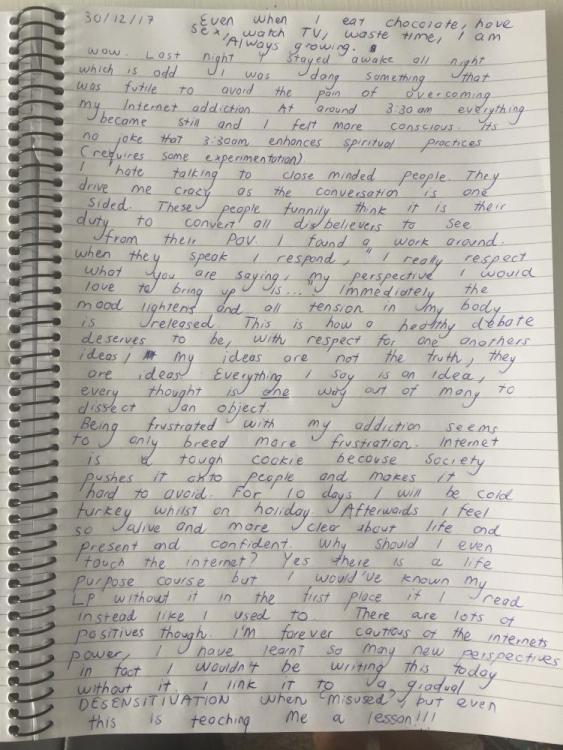 30/12/17
Even when I eat chocolate, have
sex, watch TV, waste time, I am
Always growing.
wow. Last night I stayed awake all night
which is odd I was doing something that
was futile to avoid the pain of overcoming
my Internet addiction. At around 3:30am everything
became still and I felt more conscious. Its
no joke that 3:30am enhances spiritual practices
(requires some experimentation)
I hate talking to close minded people. They
drive me crazy as the conversation is one
sided. These people funnily think it is their
duty to convert all disbelievers to see
from their POV. I found a work around.
when they speak I respond, "I really respect
what you are saying, my perspective I would
love to bring up is..." Immediately the
mood lightens and all tension in my body
is released. This is how a healthy debate
deserves to be, with respect for one anothers
ideas, my ideas are not the truth, they
are ideas. Everything I say is an idea,
every thought is one way out of many to
dissect an object.
Being frustrated with my addiction seems
to only breed more frustration. Internet
is a tough cookie because society
pushes it onto people and makes it
hard to avoid. For 10 days I will be cold
turkey whilst on holiday. Afterwards I feel
so alive and more clear about life and
present and confident. Why should I even
touch the internet? Yes there is a life
purpose course but I would've known my
LP without it in the first place if I read
instead like I used to. There are lots of
positives though. I'm forever cautious of the internets
power, I have learnt so many new perspectives
in fact I wouldn't be writing this today
without it. I link it to a gradual
DESENSITIVATION when "misused", but even
this is teaching me a lesson!!!